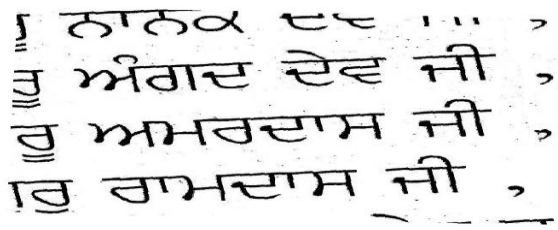 ਨਾਨਕ ਦੇਵ
ਰੂ ਅੰਗਦ ਦੇਵ ਜੀ ,
ਰੂ ਅਮਰਦਾਸ ਜੀ ,
ਰੂ ਰਾਮਦਾਸ ਜੀ ,